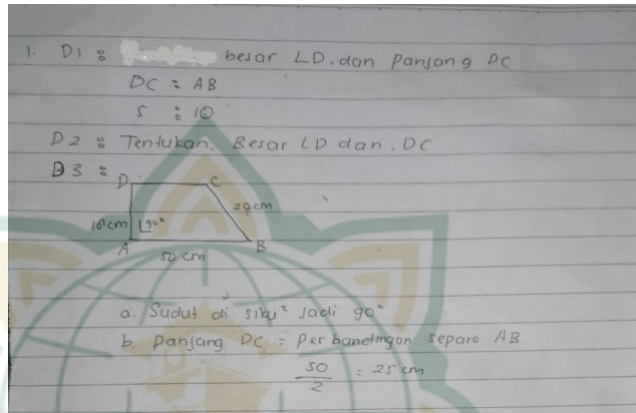 1. D1 : besar LD, dan panjang DC
DC : AB
5 : 10
D2 : Tentukan. Besar LD dan. DC
D3 :
D C
10 cm 90° 29 cm
A B
50 cm
a. Sudut di siku² jadi 90°
b. panjang DC = perbandingan separo AB
50/2 = 25 cm